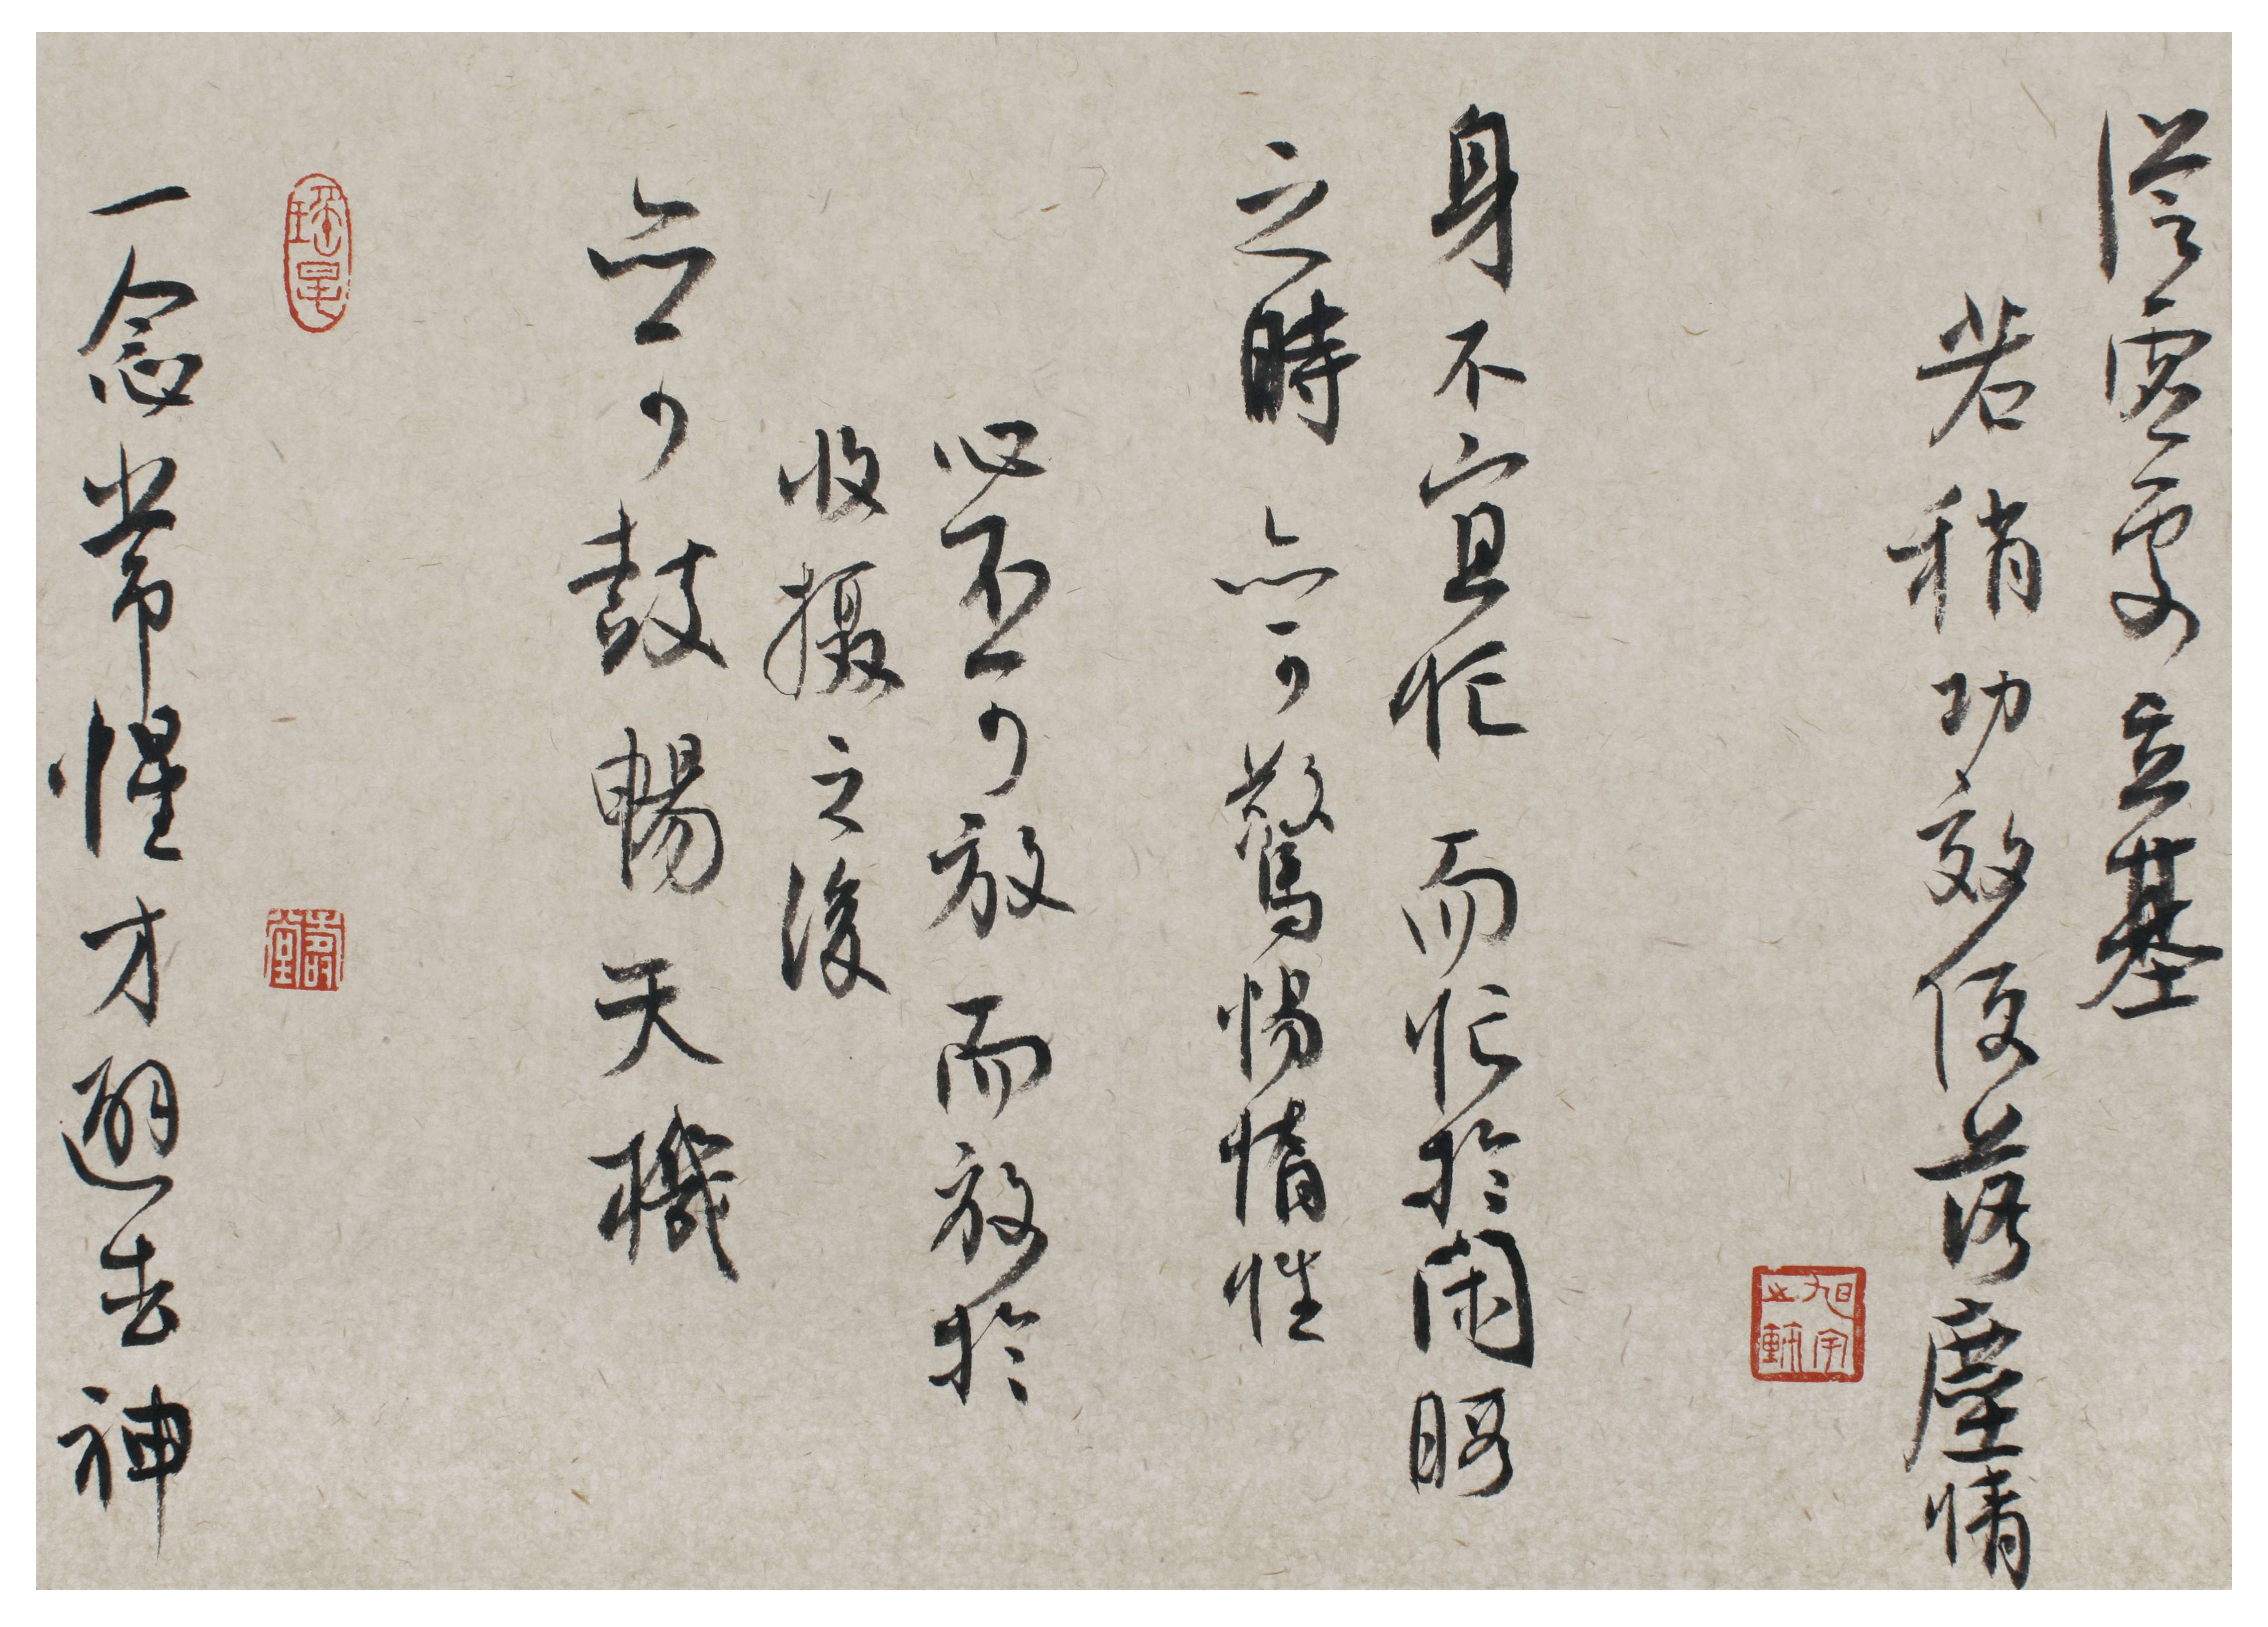 從虛處立基
若稍功效便落塵情
旭宇之軒
身不宜忙而忙於閑暇
之時亦可警惕惰性
心不可放而放於
收攝之後
亦可鼓暢天機
一念常惺才避去神